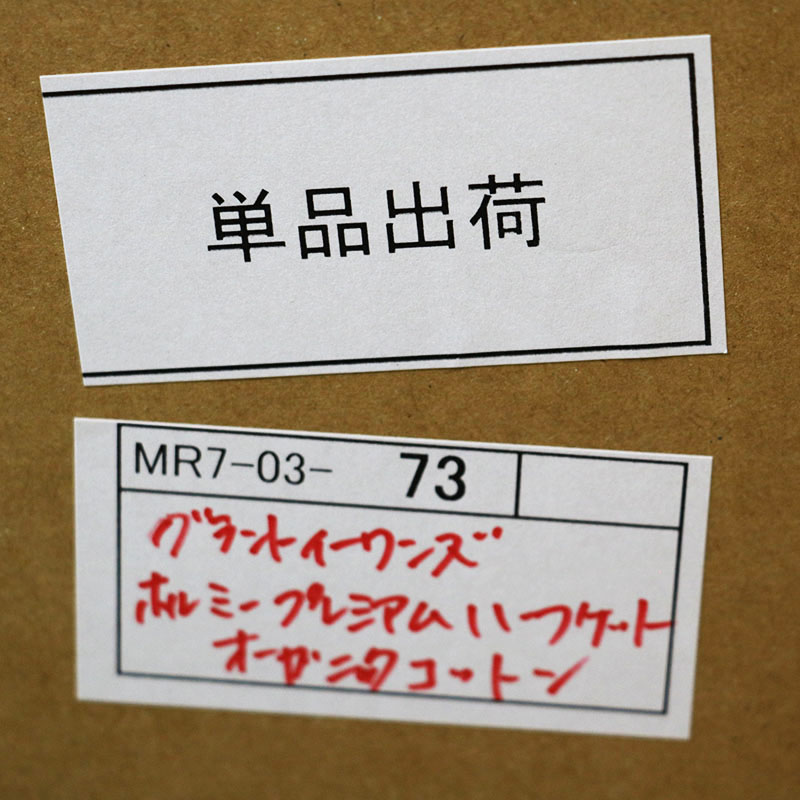 単品出荷
MR7-03- 73
グラントイーワンズ
ホルミープレミアムハーフケット
オーガニックコットン